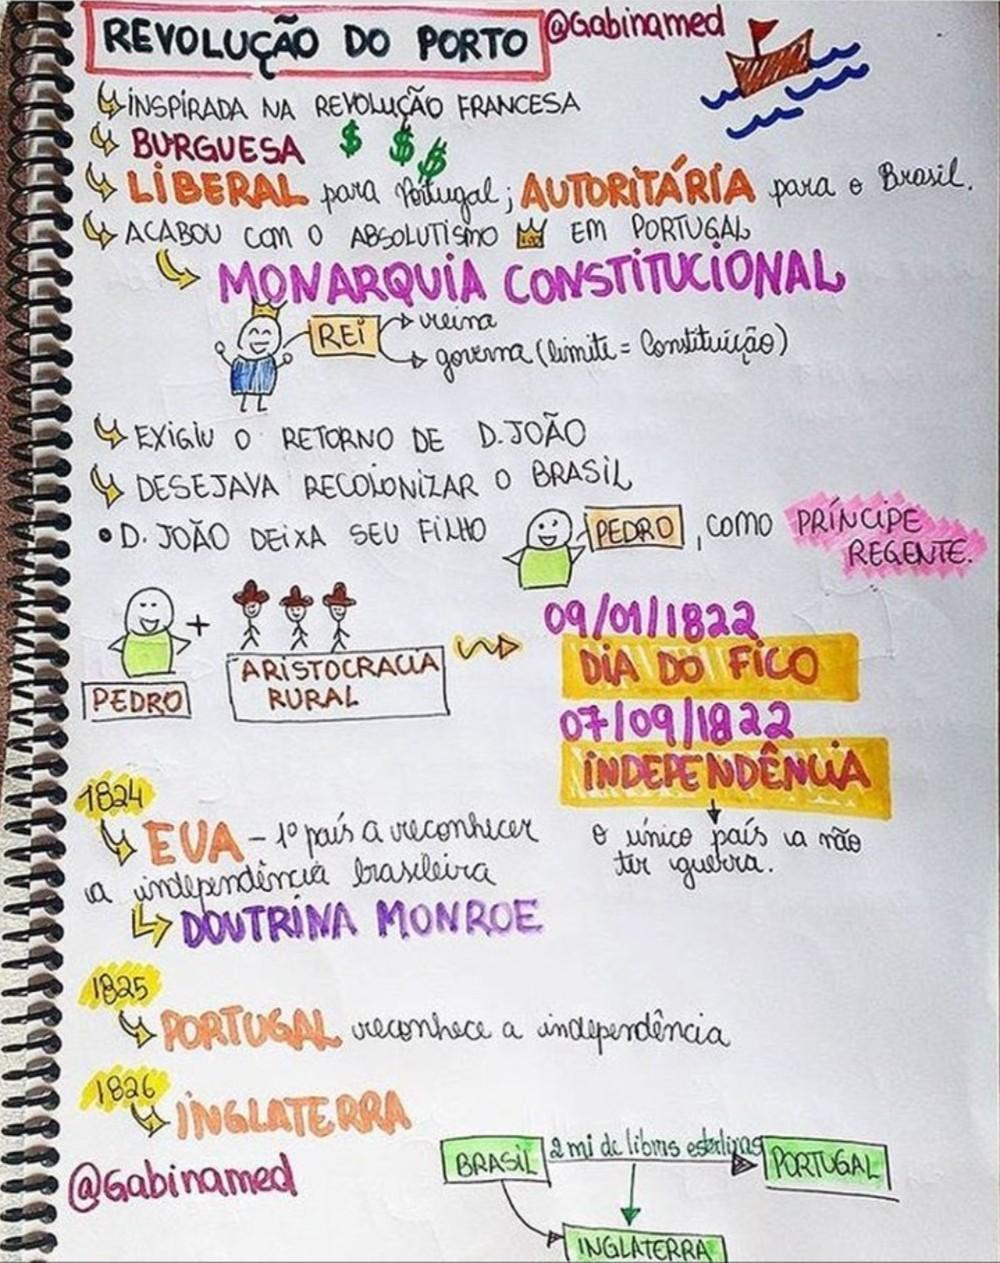 REVOLUÇÃO DO PORTO @Gabinamed
INSPIRADA NA REVOLUÇÃO FRANCESA
BURGUESA $ $ $
LIBERAL para Portugal; AUTORITÁRIA para o Brasil.
ACABOU COM O ABSOLUTISMO EM PORTUGAL
MONARQUIA CONSTITUCIONAL
REI reina
governa (limite = Constituição)
EXIGIU O RETORNO DE D. JOÃO
DESEJAVA RECOLONIZAR O BRASIL
• D. JOÃO DEIXA SEU FILHO PEDRO, COMO PRÍNCIPE
REGENTE.
PEDRO + ARISTOCRACIA
RURAL
09/01/1822
DIA DO FICO
07/09/1822
INDEPENDÊNCIA
o único país a não
ter guerra.
1824
EUA - 1º país a reconhecer
a independência brasileira
DOUTRINA MONROE
1825
PORTUGAL reconhece a independência
1826
INGLATERRA
BRASIL 2 mi de libras esterlinas PORTUGAL
INGLATERRA
@Gabinamed